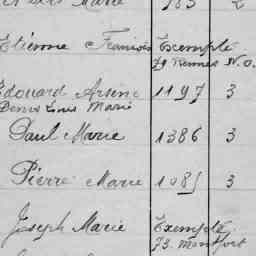 Marie 783 2
Etienne François Exempté
79 Rennes N.O.
Edouard Arsène 1197 3
Denis Louis Marie
Paul Marie 1386 3
Pierre Marie 1985 3
Joseph Marie Exempté
73. Montfort